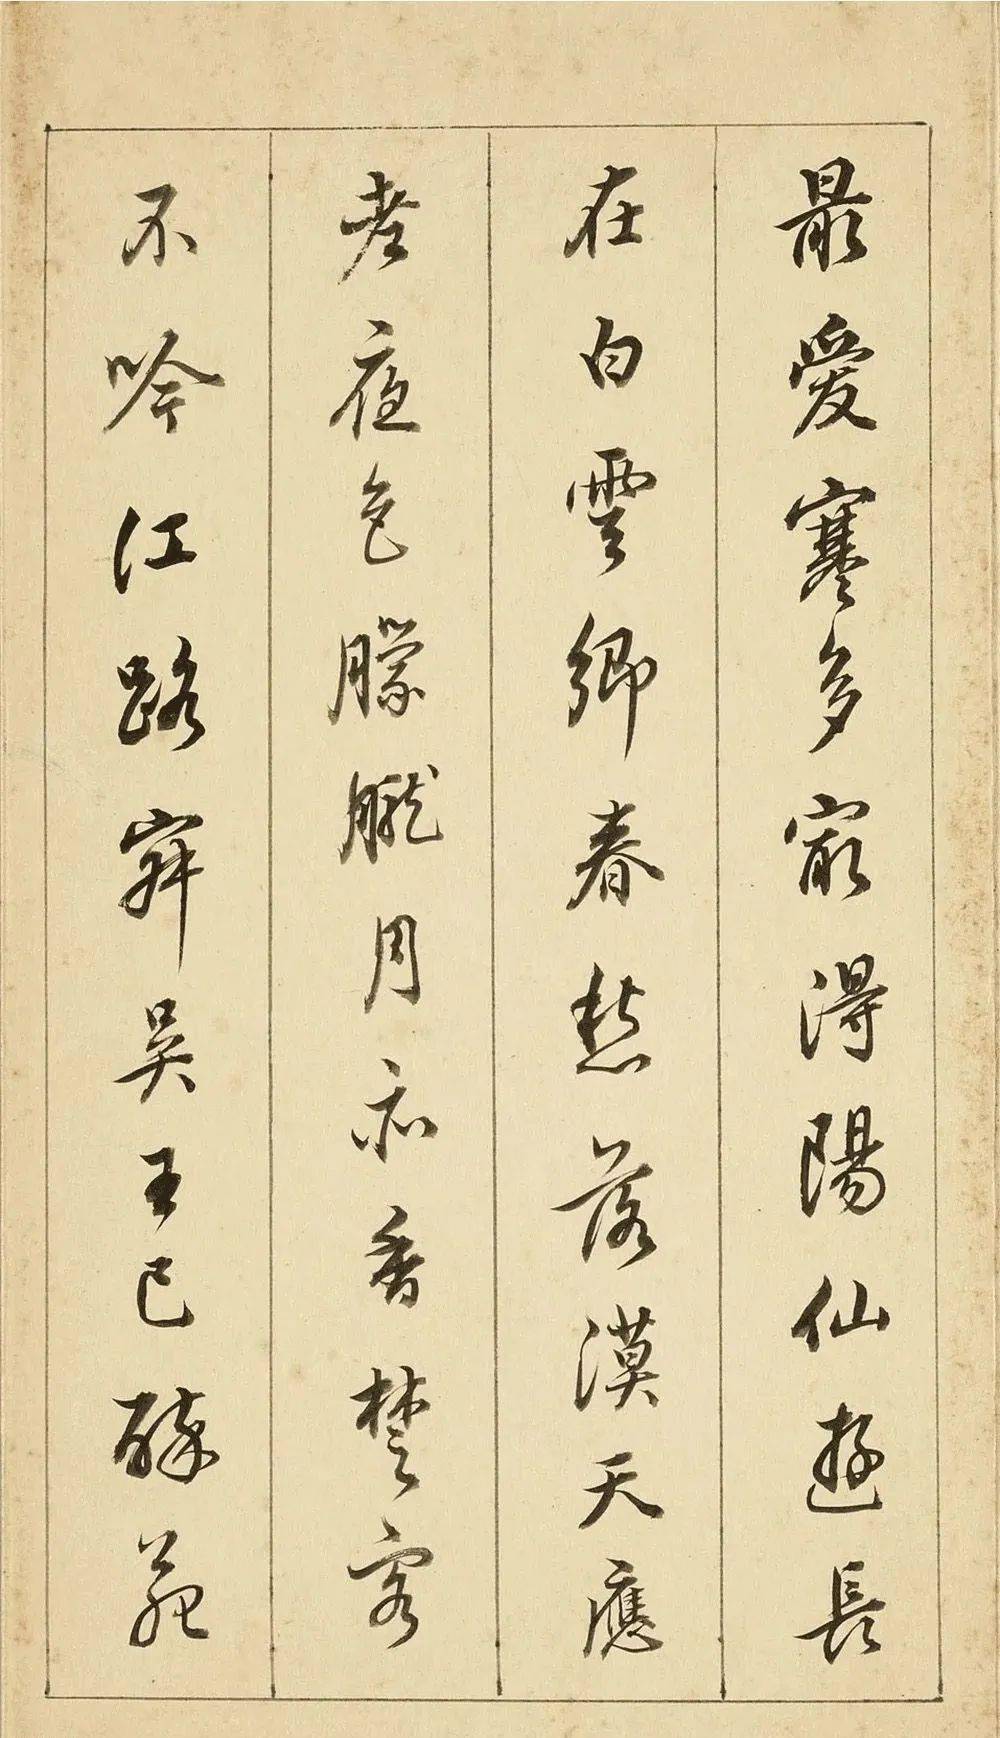 最愛寒多最得陽仙遊長
在白雲鄉春愁落漠天應
老夜色朦朧月亦香楚客
不吟江路寂吳王已醉苑